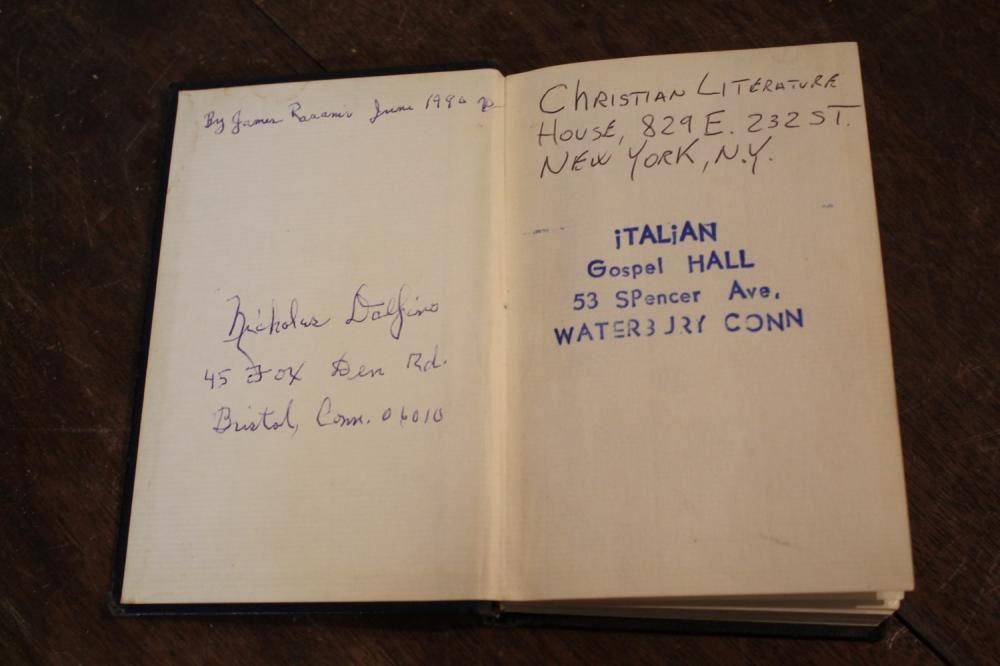 By James June 1990
Nicholas Dalfino
45 Fox Den Rd.
Bristol, Conn. 06010
CHRISTIAN LITERATURE
HOUSE, 829 E. 232 ST.
NEW YORK, N.Y.
iTALiAN
Gospel HALL
53 SPencer Ave,
WATERBURY CONN